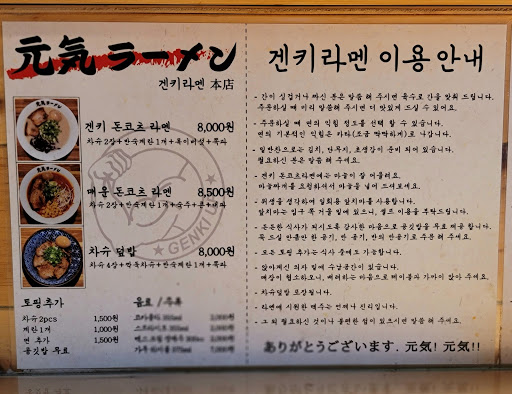 元気ラーメン
겐키라멘 本店
겐키 돈코츠 라멘 8,000원
차슈 2장+반숙계란 1개+목이버섯+쪽파
매운 돈코츠 라멘 8,500원
차슈 2장+반숙계란 1개+숙주+쪽파
차슈 덮밥 8,000원
차슈 4장+반숙계란 1개+쪽파
GENKI
토핑추가
차슈 2pcs 1,500원
계란 1개 1,000원
면 추가 1,500원
공깃밥 무료
음료 / 주류
겐키라멘 이용안내
- 간이 싱겁거나 짜신 분은 말씀 해 주시면 육수로 간을 맞춰 드립니다.
주문하실 때 미리 말씀해 주시면 더 맛있게 드실 수 있어요.
- 주문하실 때 면의 익힘 정도를 선택 할 수 있습니다.
면의 기본적인 익힘은 카타(조금 딱딱하게)로 나갑니다.
- 밑반찬으로는 김치, 단무지, 초생강이 준비 되어 있습니다.
필요하신 분은 말씀 해 주세요.
- 겐키 돈코츠라멘에는 마늘이 잘 어울려요.
마늘짜개를 요청하셔서 마늘을 넣어 드셔보세요.
- 위생을 생각하여 일회용 앞치마를 사용합니다.
앞치마는 입구 쪽 거울 밑에 있으니, 셀프 이용을 부탁드립니다.
- 든든한 식사가 되시도록 감사한 마음으로 공깃밥을 무료 제공 합니다.
꼭 드실 만큼만 한 공기, 반 공기, 반의 반공기로 주문해 주세요.
- 모든 토핑 추가는 식사 중에도 가능합니다.
- 앉아계신 의자 밑에 수납공간이 있습니다.
매장이 협소하오니, 배려하는 마음으로 테이블과 가까이 앉아 주세요.
- 차슈덮밥 포장됩니다.
- 라멘에 시원한 맥주는 언제나 진리입니다.
- 그 외 필요하신 것이나 불편한 점이 있으시면 말씀해 주세요.
ありがとうございます. 元気! 元気!!